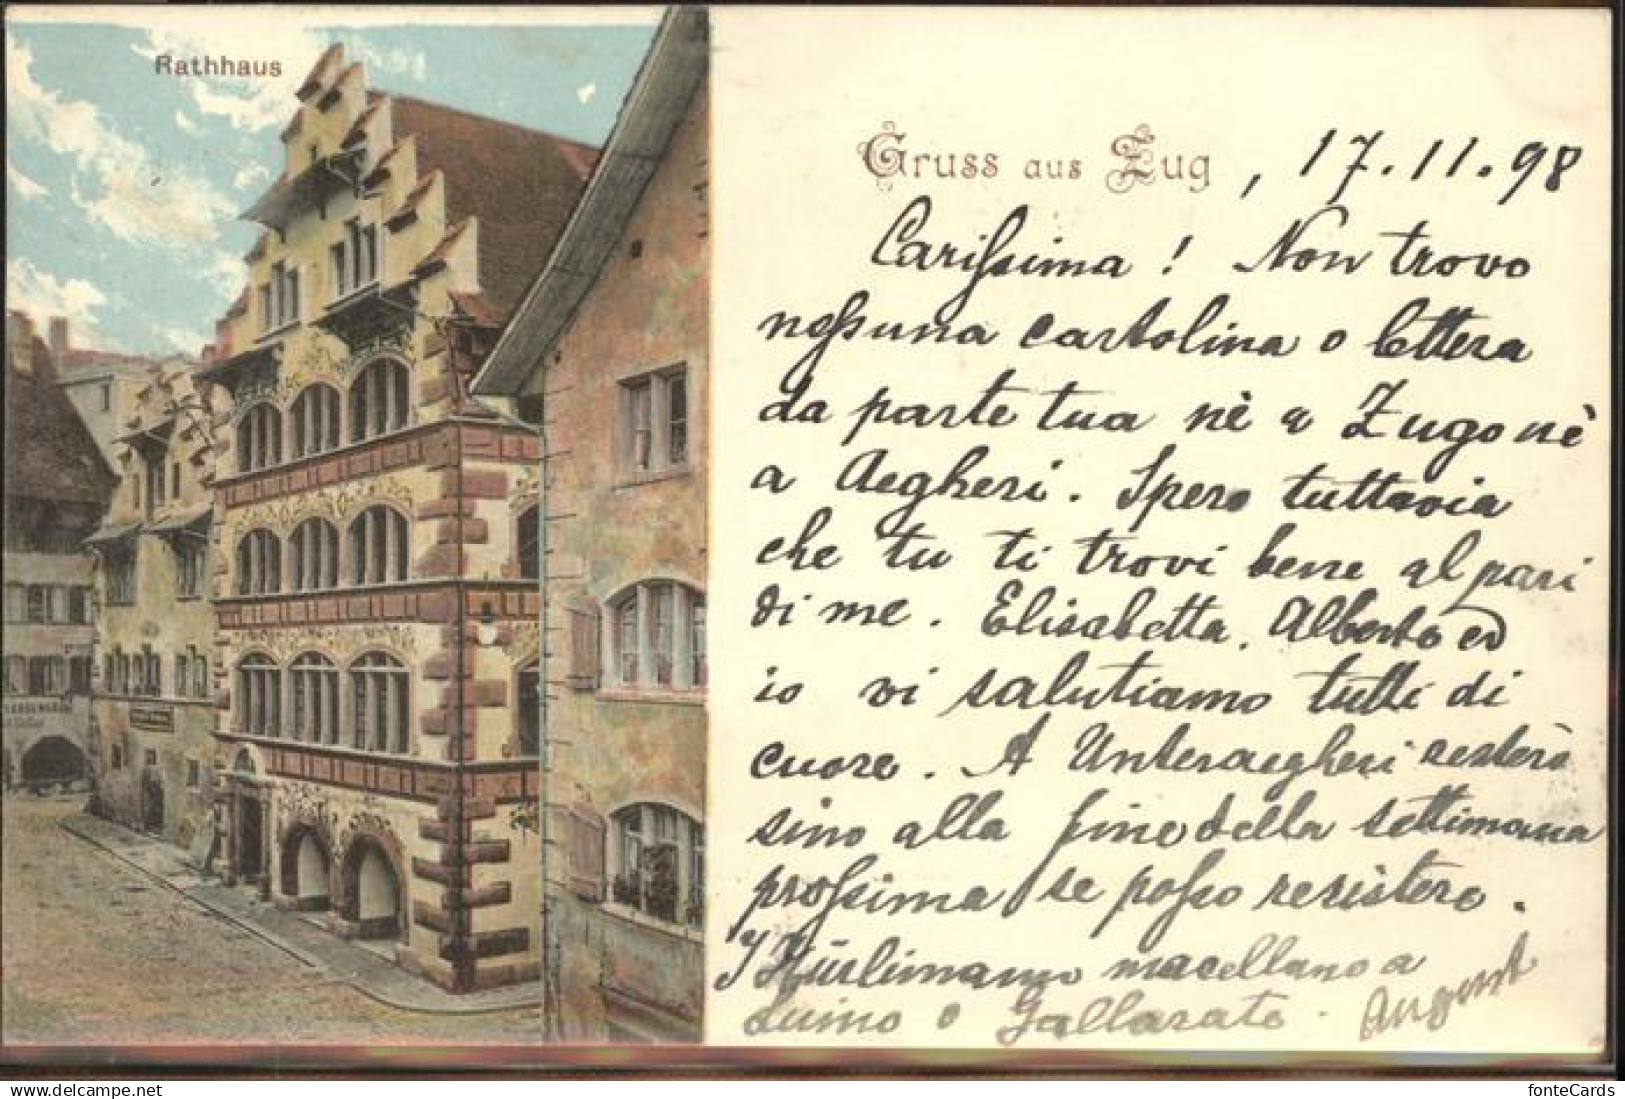 Rathhaus
Gruss aus Zug, 17.11.98
Carissima! Non trovo
nessuna cartolina o lettera
da parte tua nè a Zugo nè
a Aegheri. Spero tuttavia
che tu ti trovi bene al pari
di me. Elisabetta, Alberto ed
io vi salutiamo tutti di
cuore. A Unteraegheri resterò
sino alla fine della settimana
prossima se posso resistere.
I macellano a
Luino o Gallarate.
August
fonteCards